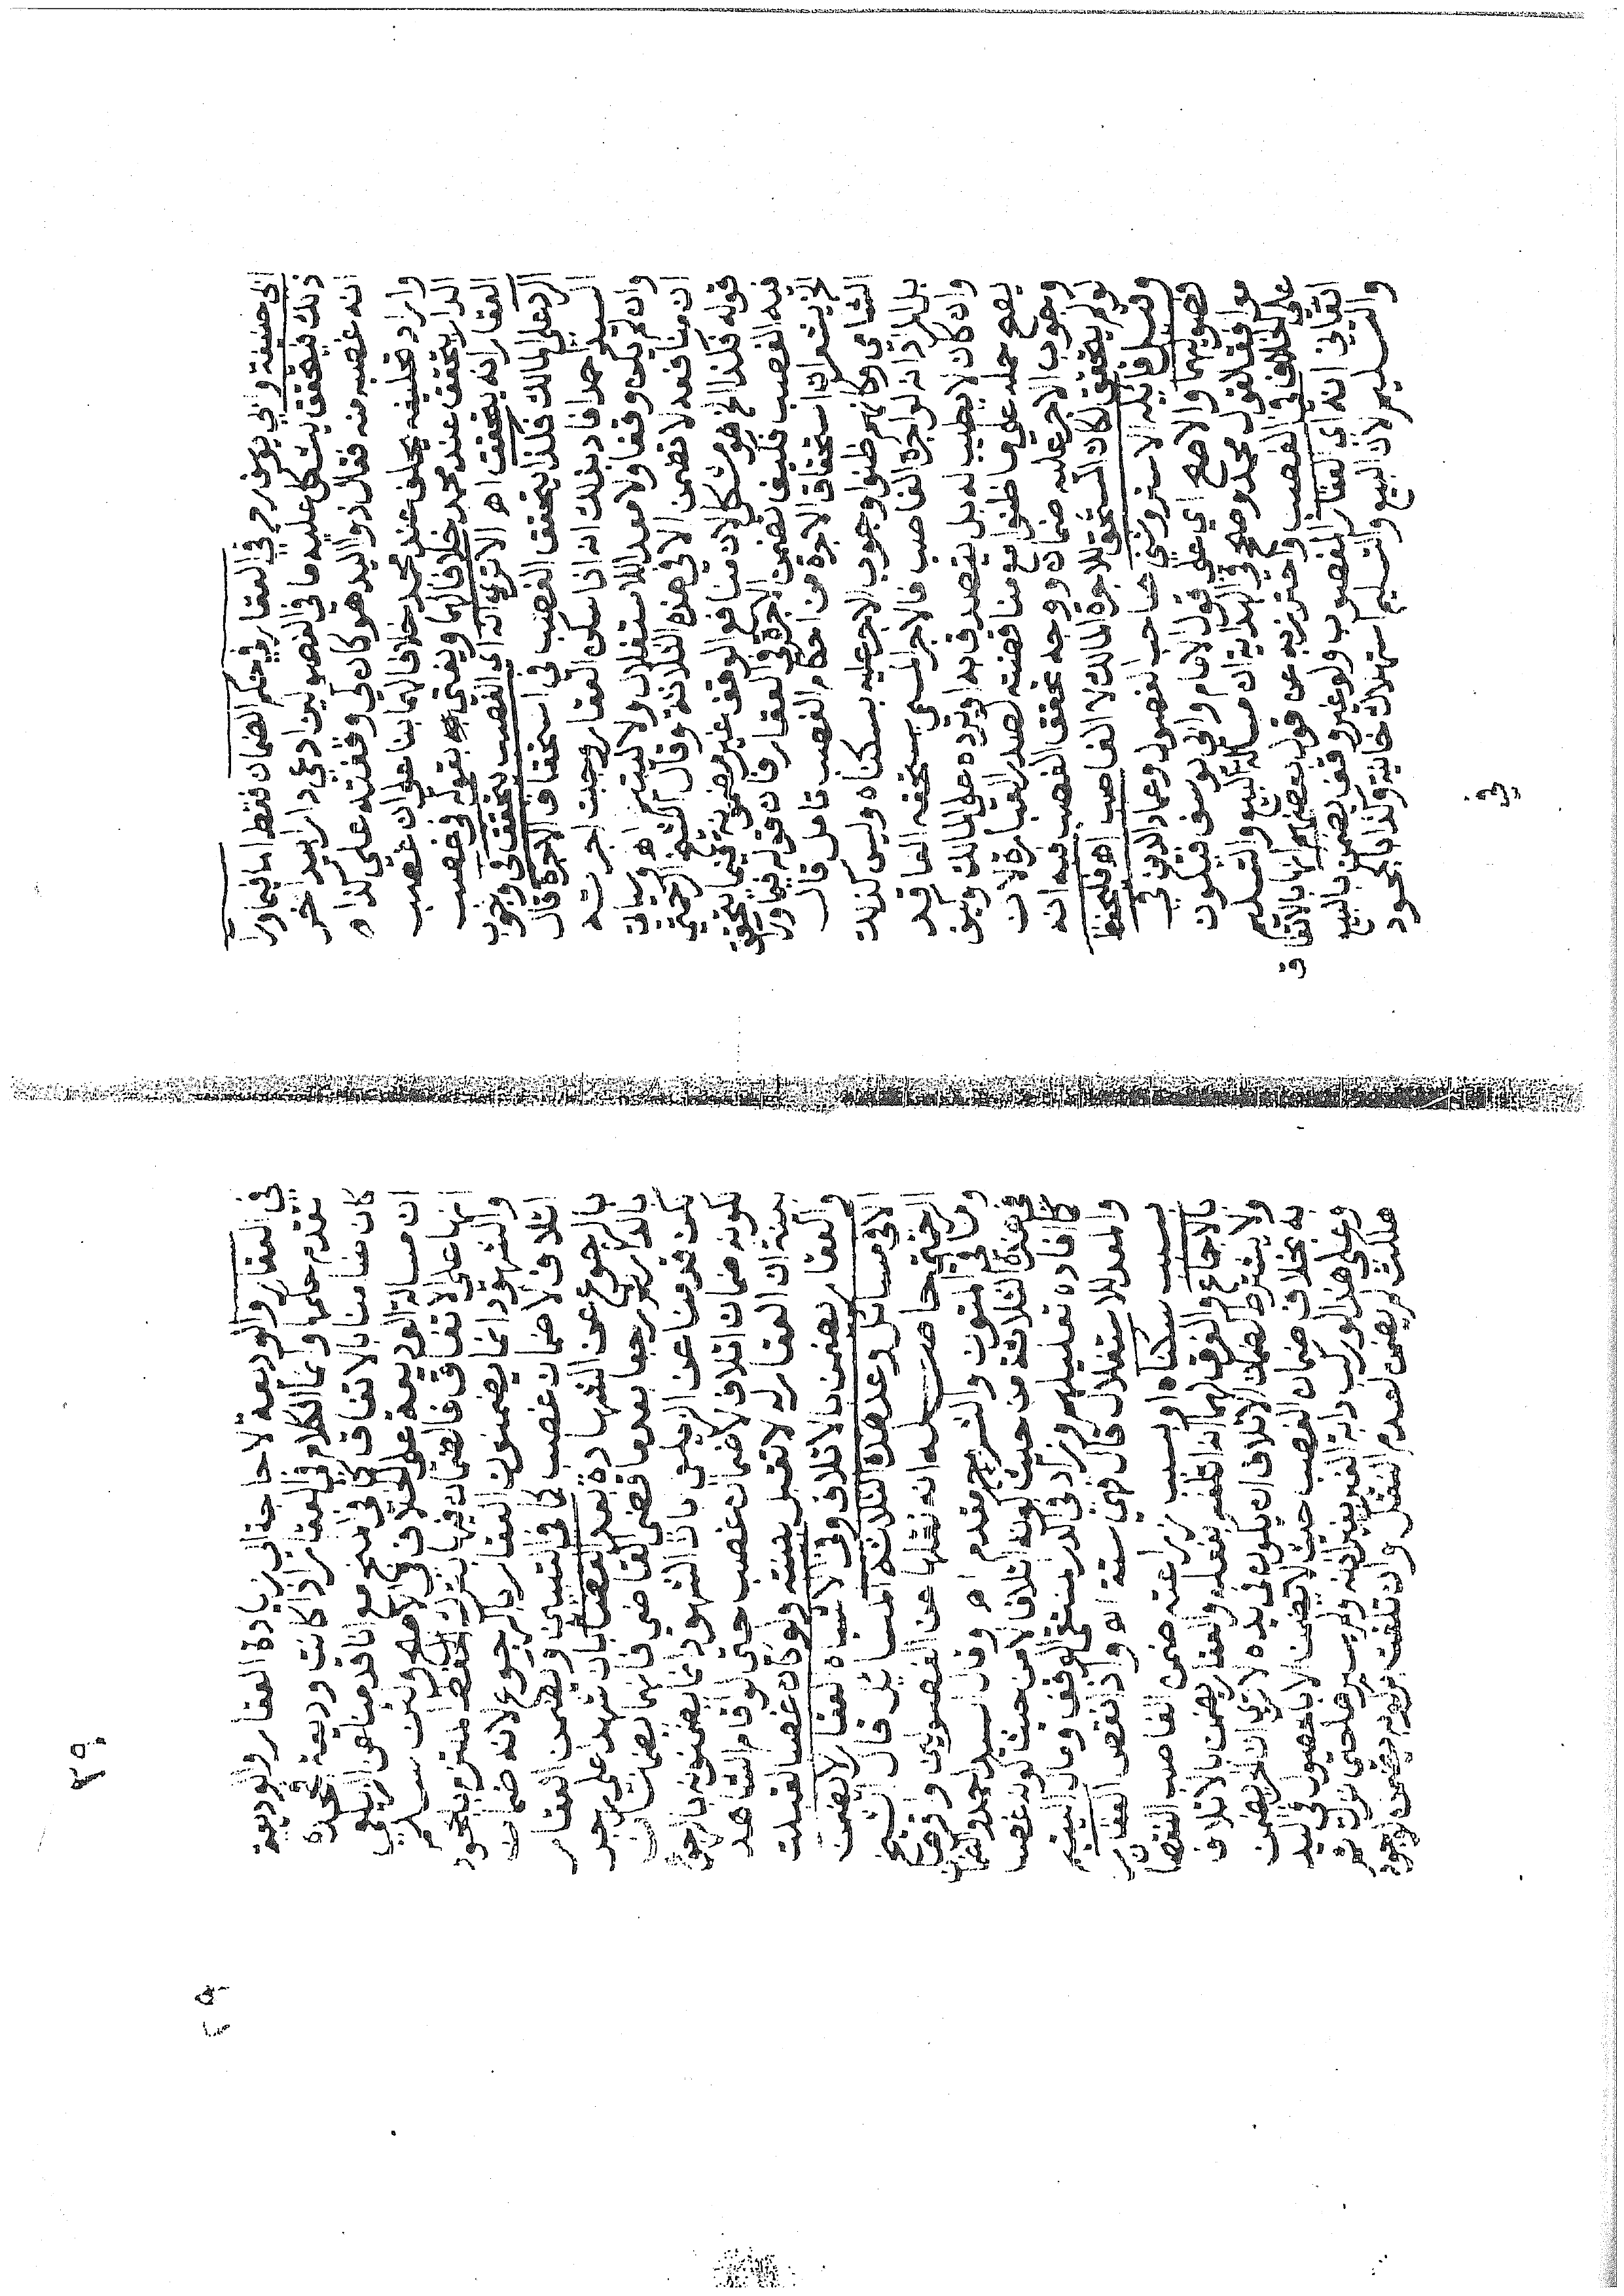 ابى حنيفة وابي يوسف رح في العقار في حكم الضمان فقط اما فيما ورا
ذلك فيتحقق يشكل عليه ما في الفصولين ادعي دارا بيد اخر
انه غصبه منه فقال ذو اليد هو كان لي وقفته على كذا
واراد تحليفه يحلف عند محمد خلافا لهما بنا على ان غصب
الدار يتحقق عند محمد خلافا لهما ويفتى بقوله في غصب
العقار انه يتحقق اه الا ترى انه اى الغصب يتحقق في وجوب
الرد على المالك فكذا يتحقق الغصب في استحقاق الاجرة قال
السيد احمد افاد بذلك انه اذا سكن العقار وجبت اجرته
وان لم يكن وقفا ولا معدا للاستغلال ولا ليتيم اه وسياتى
ان منافعه لا تضمن الا في هذه الثلاثة وقال الشيخ الرحمتي
قوله فكذا الخ هو مشكل لان منافع الوقف غير مضمونة فيما يتحقق
فيه الغصب فكيف تضمن الاجرة في العقار فان قوله فيما ورا
الخ يشعر ان استحقاق الاجرة من احكام الغصب تامل قال
الشامى وكانهم ظنوا وجوب الاجر عليه بسكناه وليس كذلك
بل المراد انه لو اجره الغاصب فالاجر المسمى يستحقه العاقد
وان كان لا يطيب له بل يتصدق به او يرده على المالك وكيف
يصح حمله على ما ظنوا مع مناقضته لصدر العبارة لان
وجوب الاجر عليه ضمان ووجه تحقق الغصب فيه انه
لو لم يتحقق لكان المستحق للاجرة المالك لا الغاصب اه فليحفظ
وقيل قائله الاستروشني صاحب الفصول وعماد الدين في
فصوليهما والاصح اي على قول الامام وابي يوسف فيكون
موافقا لقول محمد وصحح في الهداية ان مسالة البيع والتسليم
على الخلاف في الغصب واحترز به عن قول بعضهم انها بالاتفاق
اتقاني انه اى العقار المغصوب ولو غير وقف يضمن بالبيع
والتسليم لان البيع والتسليم استهلاك خانية وكذا بالجحود
في
٣٩
في العقار والوديعة لا حاجة الى زيادة العقار والوديعة
تقدم حكمها وانما الكلام في العقار اذا كانت وديعة فجحده
كان ضامنا بالاتفاق كما في المنح مع انا قدمنا عن الزيلعي
ان مسالة الوديعة على الخلاف في الاصح ولئن سلم
انها على الاتفاق فالضمان فيها بترك الحفظ الملتزم بالجحود
والشهود انما يضمنون العقار بالرجوع لانه ضمان
اتلاف لا ضمان غصب كما في التبيين ويضمن العقار
بالرجوع عن الشهادة بعد القضا بان شهدا على رجل
بالدار ثم رجعا بعد ما قضى القاضي فانهما يضمنان
لكن قدمنا عن الزيلعي بان الشهود انما يضمنونه بالرجوع
لكونه ضمان اتلاف لا ضمان غصب حتى لو اقام الشاهد
بينة ان العقار له لا تقبل بينته ولو كان غصبا لقبلت
والعقار يضمن بالاتلاف وفي الاشباه العقار لا يضمن
الا في مسائل وعد هذه الثلاثة المسائل قال الشيخ
الرحمتي حاصله انه نقلها عن الفصولين واقرها
وما في المتون والشروح مقدم اه وقال السيد احمد والضمان
في هذه الثلاثة من حيث كونه اتلافا لا من حيث كونه غصبا
كما افاده تعليلهم وزاد في الدر المنتقى الوقف ومال اليتيم
والمعد للاستغلال قال فهي ستة اه واذا نقص العقار
بسبب سكناه او بسبب زراعته ضمن الغاصب النقصان
بالاجماع والفرق لهما انه اتلفه بفعله والعقار يضمن بالاتلاف
ولا يشترط لضمان الاتلاف ان يكون في يده الا ترى ان الحر يضمن
به بخلاف ضمان الغصب حيث لا يضمن الا بالحصول في اليد
وعلى هذا لو ركب دابة الغير بغير اذنه ولم يسيرها حتى نزل ثم
هلكت لم يضمن لعدم النقل وان تلفت بركوبه يضمن لوجود